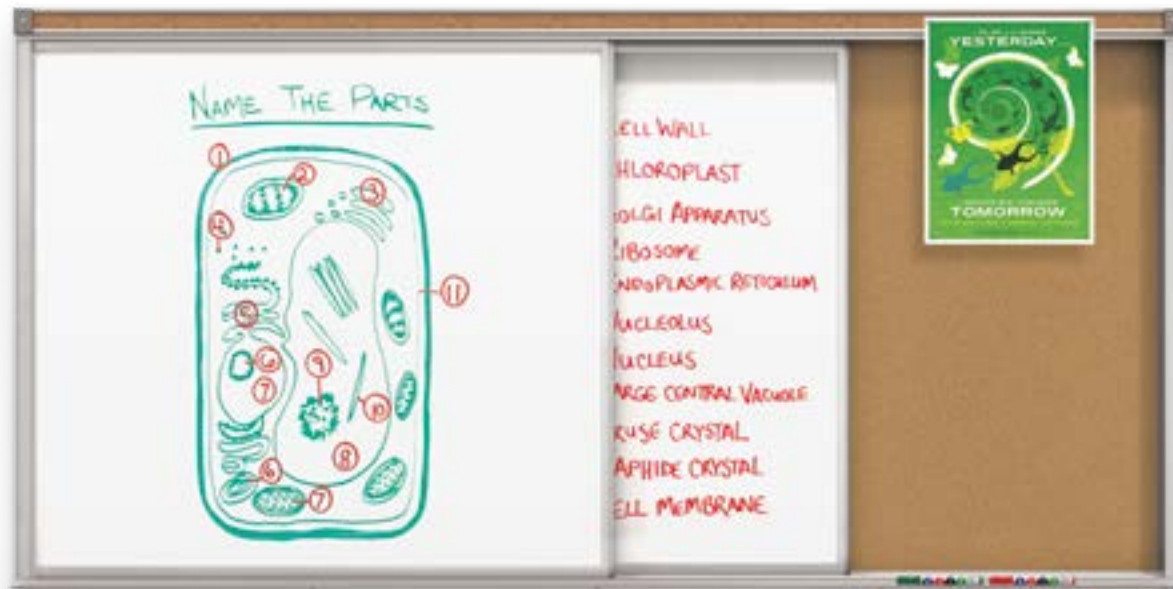 NAME THE PARTS
1
2
3
4
5
6
7
8
9
10
11
6
7
ELL WALL
HLOROPLAST
OLGI APPARATUS
IBOSOME
NDOPLASMIC RETICULUM
UCLEOLUS
UCLEUS
ARGE CENTRAL VACUOLE
RUSE CRYSTAL
APHIDE CRYSTAL
ELL MEMBRANE
YESTERDAY
TOMORROW